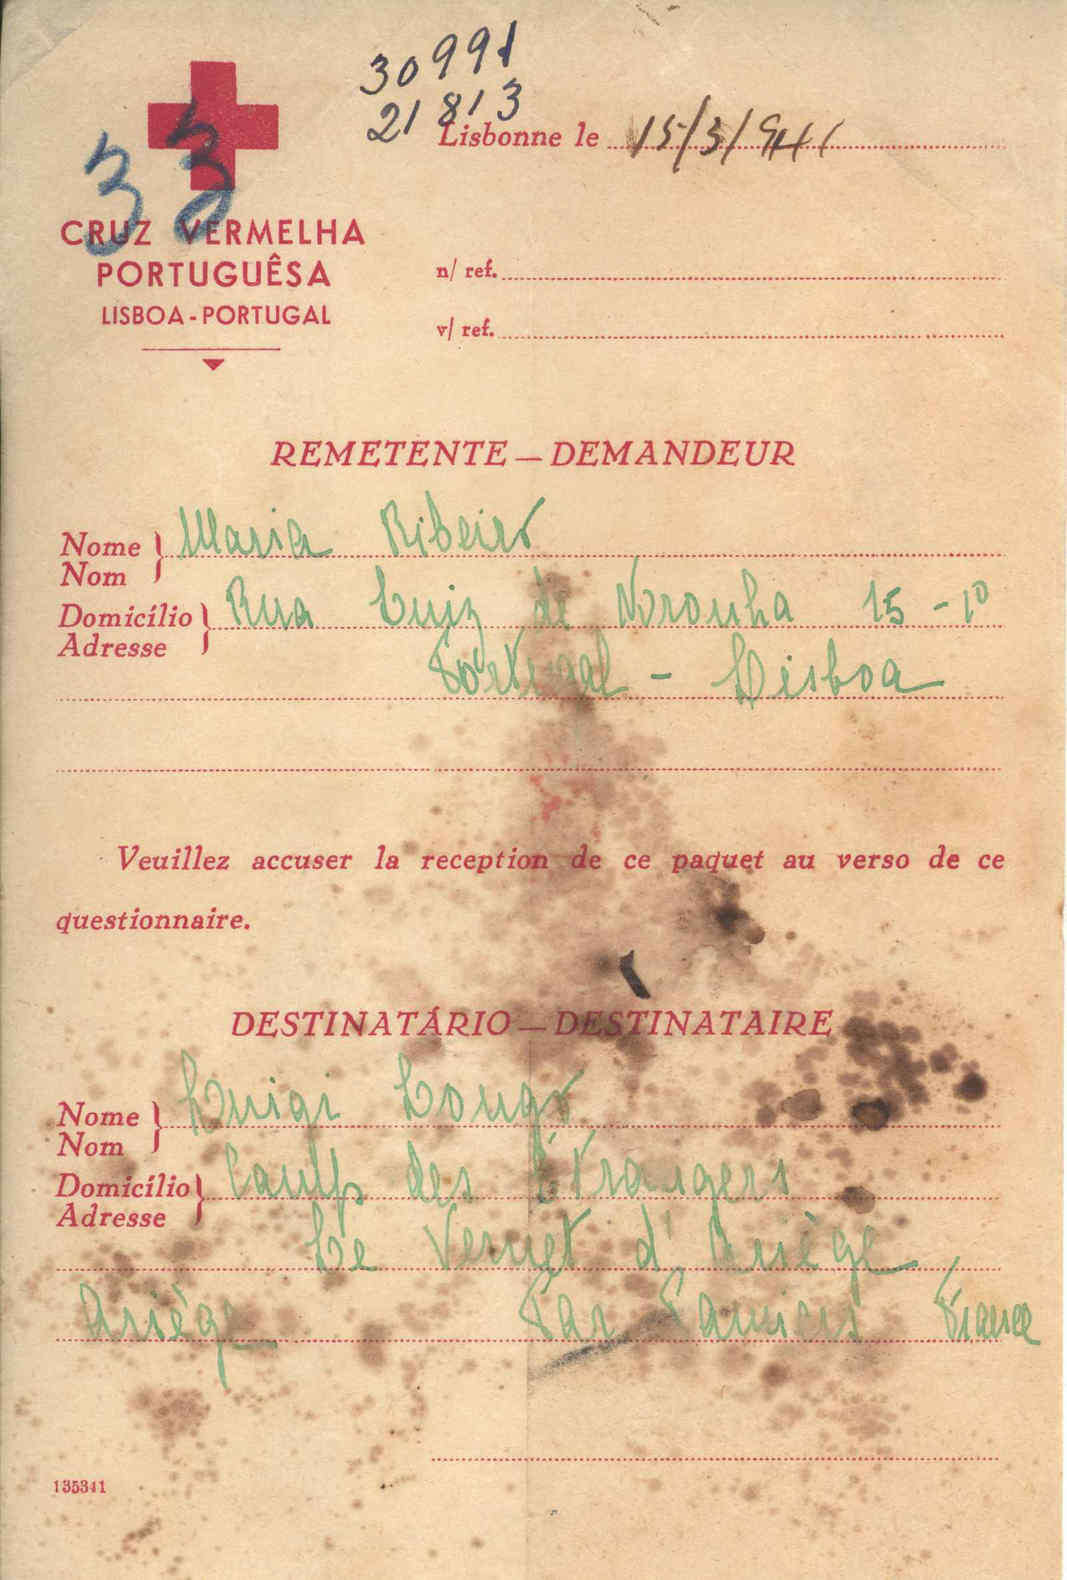 30991
21813
33
Lisbonne le 15/3/941
CRUZ VERMELHA
PORTUGUÊSA
LISBOA - PORTUGAL
n/ ref.
v/ ref.
REMETENTE — DEMANDEUR
Nome Maria Ribeiro
Nom
Domicílio Rua Luiz de Noronha 15 - 1º
Adresse
Portugal - Lisboa
Veuillez accuser la reception de ce paquet au verso de ce
questionnaire.
DESTINATÁRIO — DESTINATAIRE
Nome Luigi Longo
Nom
Domicílio Camp des Étrangers
Adresse
Le Vernet d'Ariège
Ariège Par Pamiers France
135341